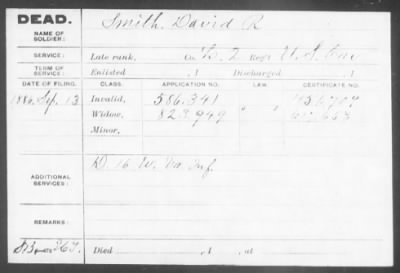 DEAD.
NAME OF SOLDIER: Smith, David R
SERVICE: Late rank, Co. L. 2 Reg't U.S. Cav
TERM OF SERVICE: Enlisted , 1 Discharged , 1
DATE OF FILING. CLASS. APPLICATION NO. LAW. CERTIFICATE NO.
1886 Sep. 13 Invalid, 586.341 " 
Widow, 823,949 "
Minor,
ADDITIONAL SERVICES: D. 16 W. Va. Inf.
REMARKS:
Died , 1 , at